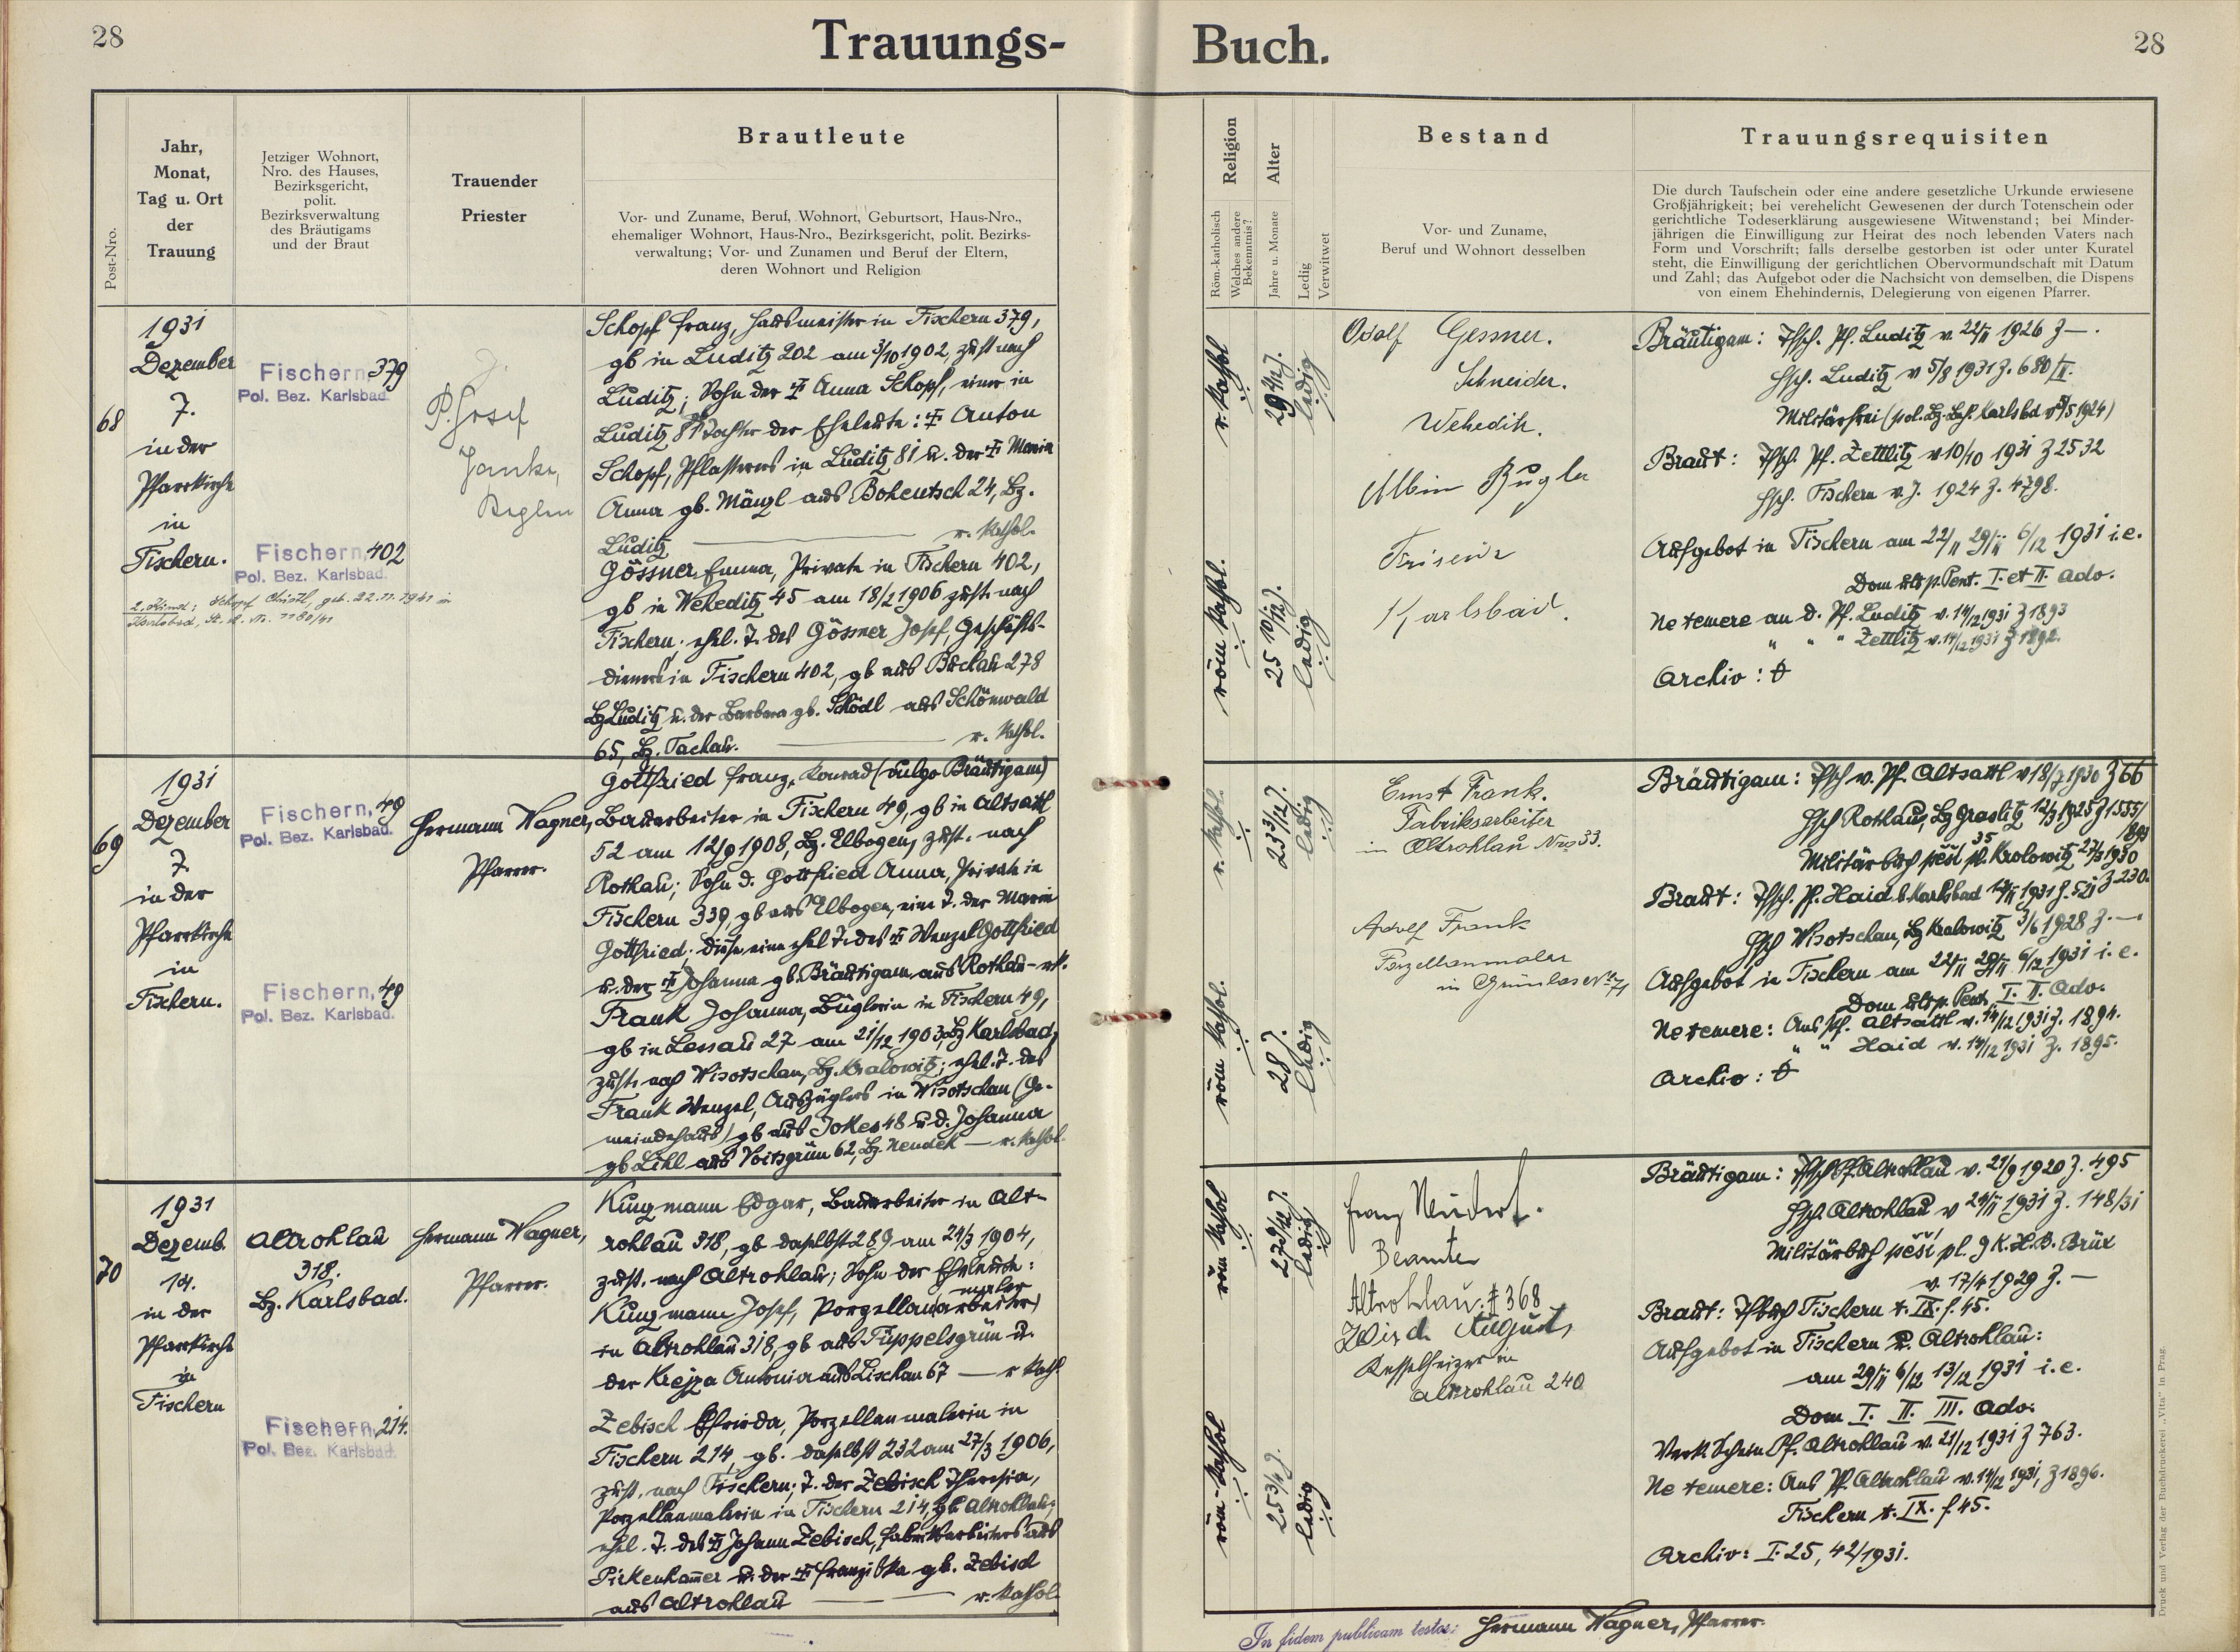 28
Trauungs-
Buch.
28
Post-Nro.
Jahr,
Monat,
Tag u. Ort
der
Trauung
Jetziger Wohnort,
Nro. des Hauses,
Bezirksgericht,
polit.
Bezirksverwaltung
des Bräutigams
und der Braut
Trauender
Priester
Brautleute
Vor- und Zuname, Beruf, Wohnort, Geburtsort, Haus-Nro.,
ehemaliger Wohnort, Haus-Nro., Bezirksgericht, polit. Bezirks-
verwaltung; Vor- und Zunamen und Beruf der Eltern,
deren Wohnort und Religion
Religion
Röm.-katholisch
Welches andere
Bekenntnis?
Alter
Jahre u. Monate
Ledig
Verwitwet
Bestand
Vor- und Zuname,
Beruf und Wohnort desselben
Trauungsrequisiten
Die durch Taufschein oder eine andere gesetzliche Urkunde erwiesene
Großjährigkeit; bei verehelicht Gewesenen der durch Totenschein oder
gerichtliche Todeserklärung ausgewiesene Witwenstand; bei Minder-
jährigen die Einwilligung zur Heirat des noch lebenden Vaters nach
Form und Vorschrift; falls derselbe gestorben ist oder unter Kuratel
steht, die Einwilligung der gerichtlichen Obervormundschaft mit Datum
und Zahl; das Aufgebot oder die Nachsicht von demselben, die Dispens
von einem Ehehindernis, Delegierung von eigenen Pfarrer.
68
1931
Dezember
7.
in der
Pfarrkirche
in
Fischern.
Fischern, 379
Pol. Bez. Karlsbad.
Fischern, 402
Pol. Bez. Karlsbad.
P. Josef
Schopf Franz, Hausmeister in Fischern 379,
gb in Luditz 202 am 3/10 1902, zust nach
Luditz; Sohn der ‡ Anna Schopf, einer in
Luditz 81 Tochter der Eheleute: ‡ Anton
Schopf, Pflasterers in Luditz 81 u. der ‡ Maria
Anna gb. Mänzl aus Bohentsch 24, Bz.
Luditz — r. Kathol.
Gössner Emma, Private in Fischern 402,
gb in Weheditz 45 am 18/2 1906 zust. nach
Fischern; ehel. T. des Gössner Josef, Geschäfts-
dieners in Fischern 402, gb aus Buchau 278
Bz Luditz u. der Barbara gb. Schödl aus Schönwald
65, Bz. Tachau. — r. Kathol.
r. Kathol
29 2/12 J.
ledig
röm Kathol.
25 10/12 J.
ledig
Adolf Gessner.
Schneider.
Weheditz.
Albin Bugla
Friseur
Karlsbad.
Bräutigam: Tfsch. Pf. Luditz v. 22/II 1926 Z —.
Hsch. Luditz v 5/8 1931 Z. 680/II.
Braut: Tfsch. Pf. Zettlitz v 10/10 1931 Z 2532
Hsch. Fischern v. J. 1924 Z. 4798.
Aufgebot in Fischern am 22/11 29/11 6/12 1931 i.e.
Dom ult p. Pent. I. et II. Adv.
Ne temere an d. Pf. Luditz v. 14/12 1931 Z 1893
" " " Zettlitz v. 14/12 1931 Z 1892.
Archiv:
69
1931
Dezember
7.
in der
Pfarrkirche
in
Fischern.
Fischern, 49
Pol. Bez. Karlsbad.
Fischern, 49
Pol. Bez. Karlsbad.
Hermann Wagner,
Pfarrer.
Gottfried Franz, Konrad (vulgo Bräutigam)
Bauarbeiter in Fischern 49, gb in Altsattl
52 am 12/9 1908, Bz. Elbogen, zust. nach
Rothau; Sohn d. Gottfried Anna, Private in
Fischern 339, gb aus Elbogen, eine T. der Maria
Gottfried; diese eine ehel T. des ‡ Wenzel Gottfried
u. der ‡ Johanna gb. Bräutigam aus Rothau — rk.
Frank Johanna, Büglerin in Fischern 49,
gb in Lessau 27 am 21/12 1903, Bz Karlsbad,
zust. nach Wisotschan, Bz. Kralowitz; ehel. T. des
Frank Wenzel, Auszüglers in Wisotschan (Ge-
meindehaus) gb aus Jokes 48 u d. Johanna
gb Lihl aus Voitsgrün 62, Bz. Neudek — r. Kathol.
r. Kathol.
23 3/12 J.
ledig
röm Kathol.
28 J.
ledig
Ernst Frank.
Fabriksarbeiter
in Altrohlau Nro 33.
Adolf Frank
Porzellanmaler
in Grünlas No 71
Bräutigam: Tfsch v. Pf. Altsattl v 18/7 1930 Z 66
Hsch Rothau, Bz Graslitz 12/3 1925 Z 1555/
Braut: Tfsch. Pf. Haid b. Karlsbad 12/II 1931 Z. 521
Hsch Wisotschan, Bz Kralowitz 3/6 1928 Z. —.
Aufgebot in Fischern am 22/11 29/11 6/12 1931 i. e.
Dom ult p. Pent. I. II. Adv.
Ne temere: Aus Pf. Altsattl v. 14/12 1931 Z. 1894.
" " Haid v. 14/12 1931 Z. 1895.
Archiv:
70
1931
Dezemb.
14.
in der
Pfarrkirche
in
Fischern
Altrohlau
318.
Bz. Karlsbad.
Fischern, 214.
Pol. Bez. Karlsbad.
Hermann Wagner,
Pfarrer.
Kunzmann Edgar, Bauarbeiter in Alt-
rohlau 318, gb daselbst 289 am 24/3 1904,
zust. nach Altrohlau; Sohn der Eheleute:
maler
Kunzmann Josef, Porzellan(arbeiter)
in Altrohlau 318, gb aus Tüppelsgrün u.
der Krejza Antonia aus Lischau 67 — r Kath.
Zebisch Elfrieda, Porzellanmalerin in
Fischern 214, gb. daselbst 232 am 27/3 1906,
zust. nach Fischern; T. der Zebisch Theresia,
Porzellanmalerin in Fischern 214, gb Altrohlau;
ehel. T. des ‡ Johann Zebisch, Fabriksarbeiters aus
Pirkenhammer u. der ‡ Franziska gb. Zebisch
aus Altrohlau — r. Kathol.
röm Kathol
27 9/12 J.
ledig
röm-Kathol
25 3/4 J.
ledig
Franz Neudert.
Beamter
Altrohlau: # 368
August
Kesselheizer in
Altrohlau 240
Bräutigam: Tfsch Pf. Altrohlau v. 21/9 1920 Z. 495
Hsch. Altrohlau v 24/II 1931 Z. 148/31
Militärbuch pěší pl. 9 K.H.B. Brüx
v. 17/4 1929 Z. —
Braut: Tfbuch Fischern t. IX. f. 45.
Aufgebot in Fischern u. Altrohlau:
am 29/11 6/12 13/12 1931 i. e.
Dom I. II. III. Adv.
Verk. Schein Pf. Altrohlau v. 21/12 1931 Z 763.
Ne temere: Aus Pf. Altrohlau v. 14/12 1931, Z 1896.
Fischern t. IX. f. 45.
Archiv: I. 25, 42/1931.
In fidem publicam testor: Hermann Wagner, Pfarrer.
Druck und Verlag der Buchdruckerei „Vita" in Prag.